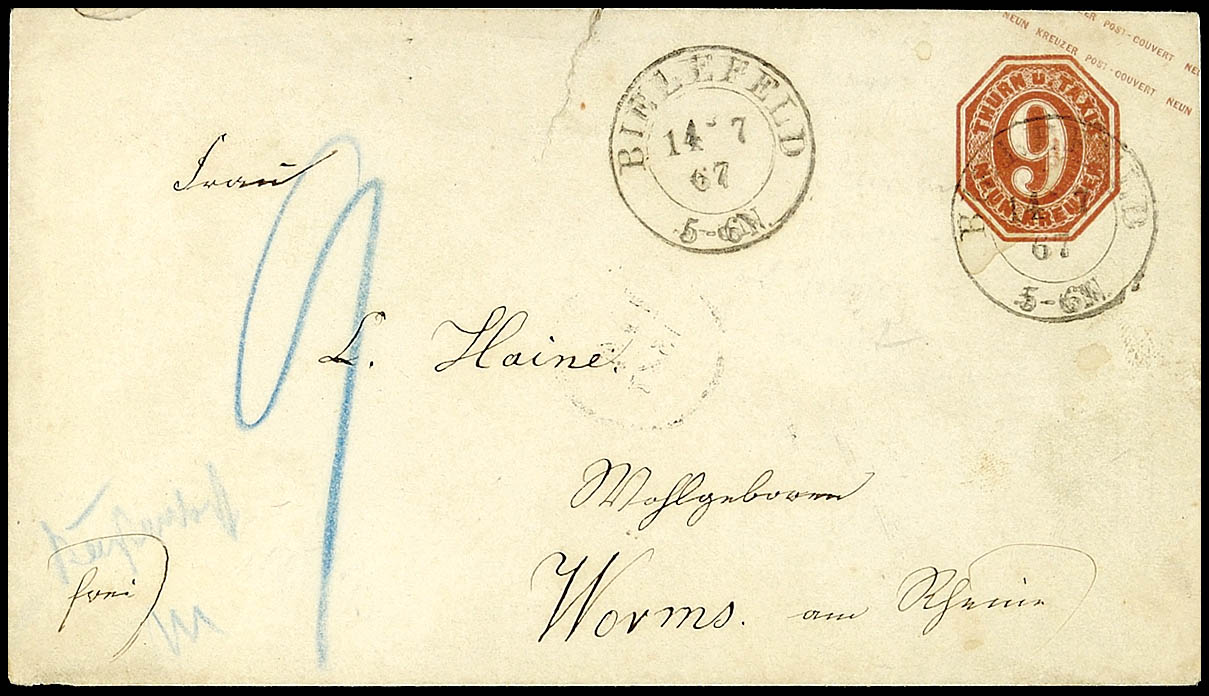 NEUN KREUZER POST-COUVERT NEUN
ER POST-COUVERT NEU
THURN U. TAXIS
9
NEUN KREUZER
BIELEFELD
14 7
67
5-6N.
B LD
14 7
67
5-6N.
Frau
9
L. Haine.
Wohlgeboren
Worms. am Rhein
frei